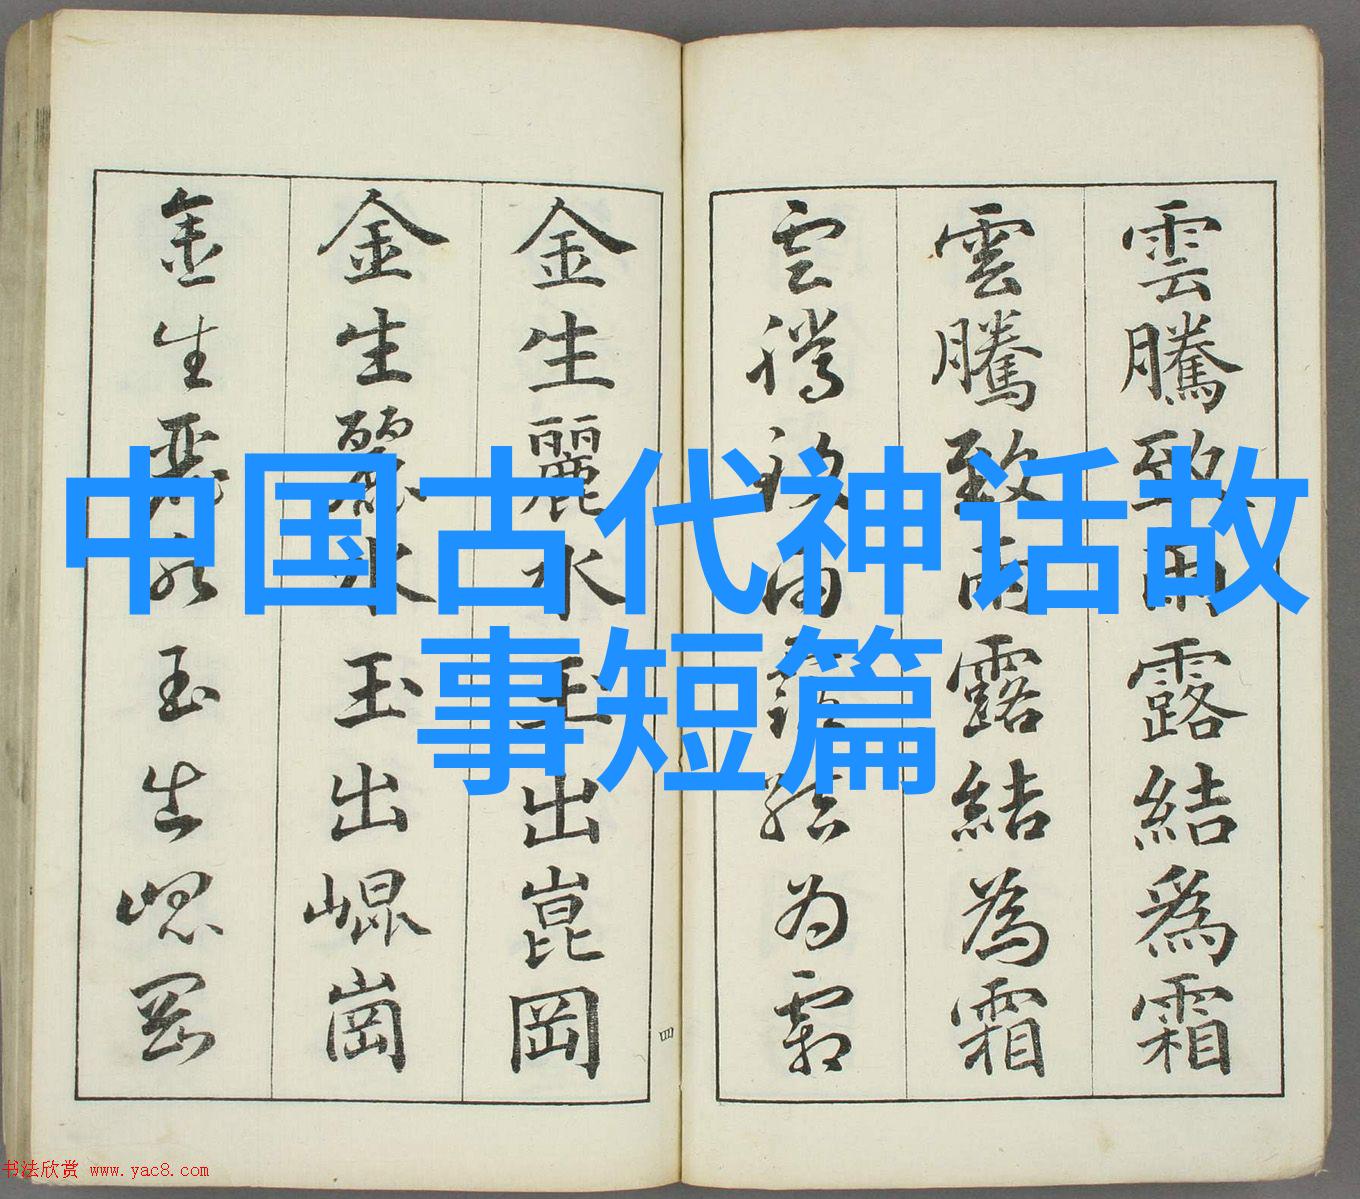 雲騰致雨露結為霜
雲騰致雨露結為霜
雲騰致雨露結為霜
金生麗水玉出崑岡
金生麗水玉出崐崗
金生麗水玉出崐岡
四
中国古代神话故
事短篇
书法欣赏 www.yac8.com